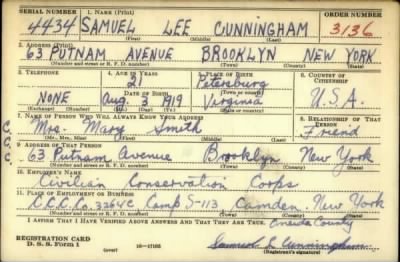 SERIAL NUMBER 1. NAME (Print) ORDER NUMBER
4434 SAMUEL LEE CUNNINGHAM 3136
(First) (Middle) (Last)
2. ADDRESS (Print)
63 PUTNAM AVENUE BROOKLYN NEW YORK
(Number and street or R. F. D. number) (Town) (County) (State)
3. TELEPHONE 4. AGE IN YEARS 5. PLACE OF BIRTH 6. COUNTRY OF CITIZENSHIP
21 Petersburg
DATE OF BIRTH (Town or county)
NONE Aug. 3 1919 Virginia U.S.A.
(Exchange) (Number) (Mo.) (Day) (Yr.) (State or country)
7. NAME OF PERSON WHO WILL ALWAYS KNOW YOUR ADDRESS 8. RELATIONSHIP OF THAT PERSON
C.C.C. Mrs. Mary Smith Friend
(Mr., Mrs., Miss) (First) (Middle) (Last)
9. ADDRESS OF THAT PERSON
63 Putnam Avenue Brooklyn New York
(Number and street or R. F. D. number) (Town) (County) (State)
10. EMPLOYER'S NAME
Civilian Conservation Corps
11. PLACE OF EMPLOYMENT OR BUSINESS
C.C.C. Co. 3264C Camp S-113, Camden, New York
(Number and street or R. F. D. number) (Town) (County) (State)
Oneida County
I AFFIRM THAT I HAVE VERIFIED ABOVE ANSWERS AND THAT THEY ARE TRUE.
REGISTRATION CARD
D. S. S. Form 1 (over) 16-17105 Samuel L Cunningham
(Registrant's signature)